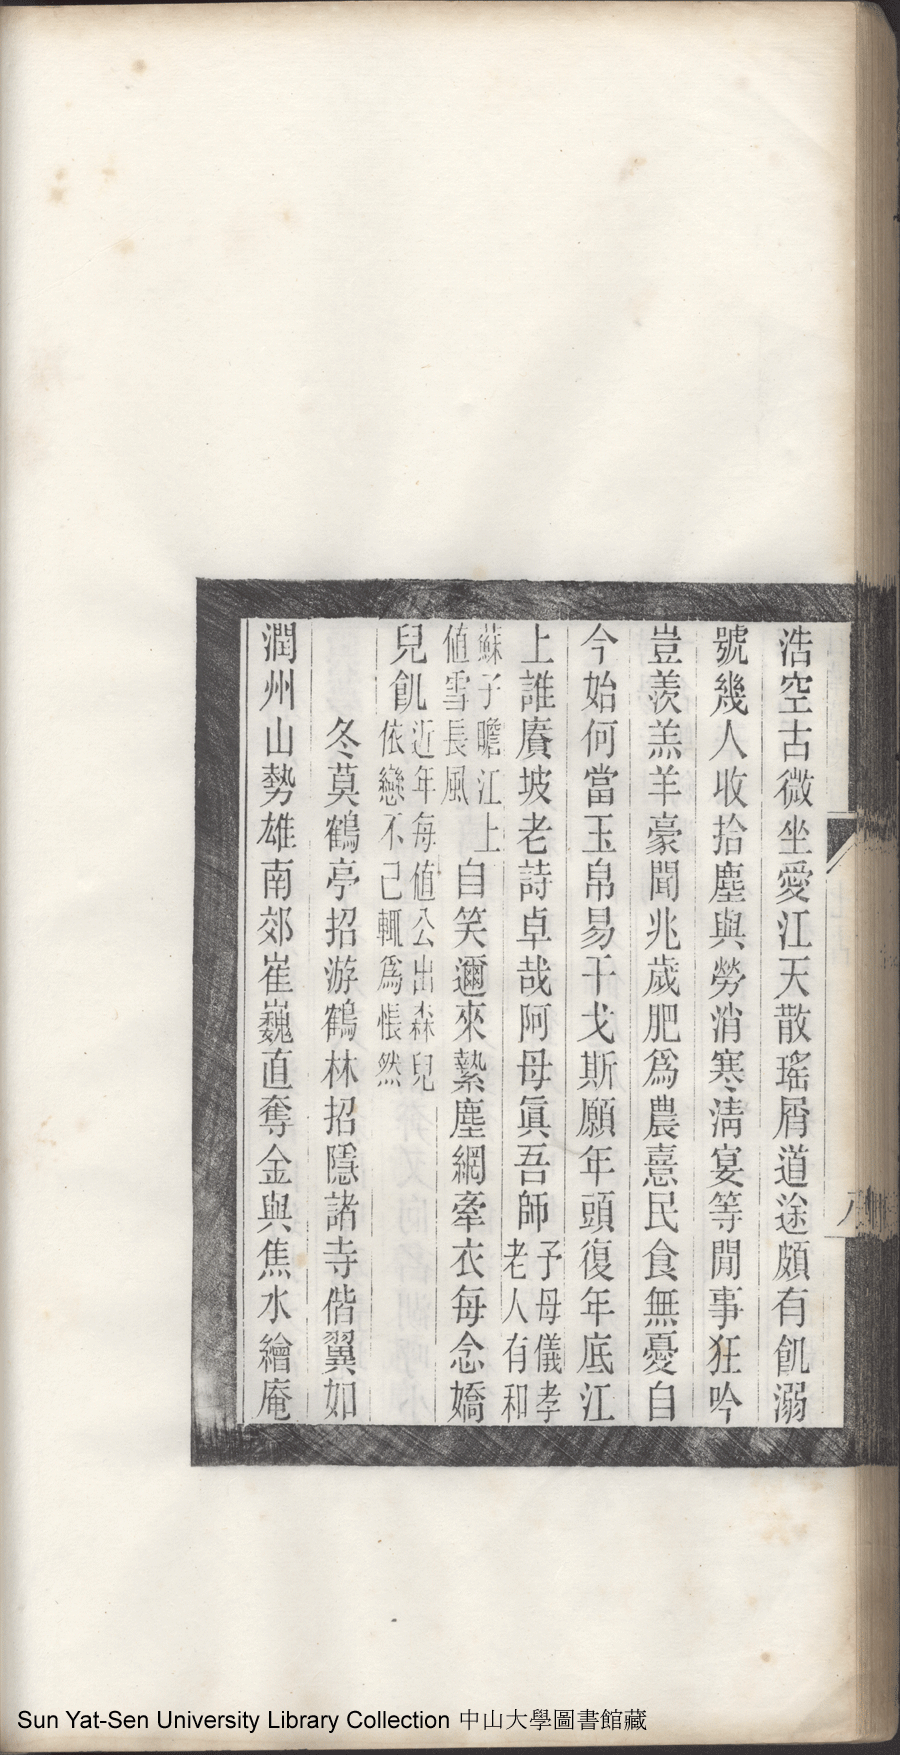 浩空古微坐愛江天散瑤屑道途頗有飢溺
號幾人收拾塵與勞消寒淸宴等閒事狂吟
豈羨羔羊豪聞兆歲肥爲農憙民食無憂自
今始何當玉帛易干戈斯願年頭復年底江
上誰賡坡老詩卓哉阿母眞吾師予母儀孝老人有和
蘇子瞻江上值雪長風自笑邇來縶塵網牽衣每念嬌
兒飢近年每值公出森兒依戀不已輒爲悵然
冬莫鶴亭招游鶴林招隱諸寺偕翼如
潤州山勢雄南郊崔巍直奪金與焦水繪庵
八
Sun Yat-Sen University Library Collection 中山大學圖書館藏